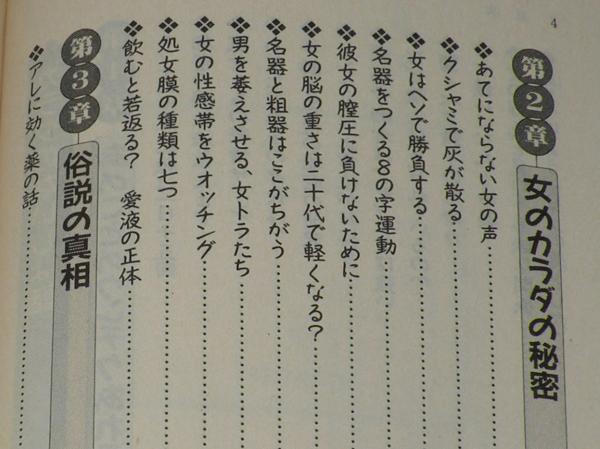 4
第2章 女のカラダの秘密
❖あてにならない女の声
❖クシャミで灰が散る
❖女はヘソで勝負する
❖名器をつくる8の字運動
❖彼女の膣圧に負けないために
❖女の脳の重さは二十代で軽くなる?
❖名器と粗器はここがちがう
❖男を萎えさせる、女トラたち
❖女の性感帯をウオッチング
❖処女膜の種類は七つ
❖飲むと若返る? 愛液の正体
第3章 俗説の真相
❖アレに効く薬の話